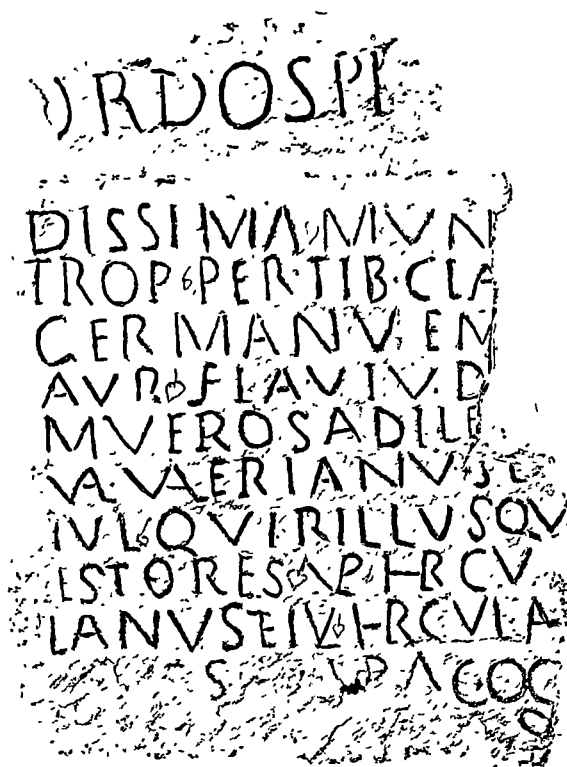 ORDOSPL
DISSIMAMVN
TROP PER·TIB·CLA
GERMANV EN
AVR FLAVIV D
MVEROSADILE
VA VALERIANVS E
IVL QVIRILLVSQV
ESTORES VP HRCV
LANVSETIVL HRCVLA